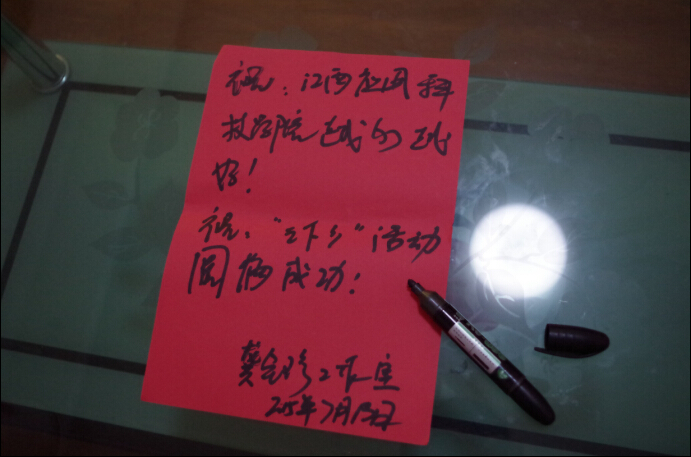 祝：江西应用科
技学院越办越
好！
祝："三下乡"活动
圆满成功！
龚全珍工作室
2015年7月13日